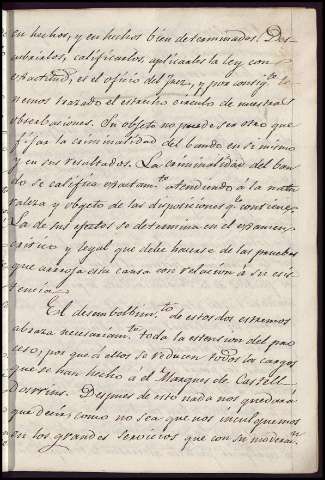 en hechos, y en hechos bien determinados. Des-
cubrirlos, calificarlos, aplicarles la ley con
exactitud, es el oficio del Juez, y por consigte. te-
nemos trazado el estrecho circulo de nuestras
observaciones. Su objeto no puede ser otro que
fijar la criminalidad del bando en sí mismo
y en sus resultados. La criminalidad del ban-
do se califica exactamte. atendiendo á la natu
raleza y objeto de las disposiciones qe. contiene.
La de sus efectos se determina en el examen
critico y legal que debe hacerse de las pruebas
que arroja esta causa con relación á su exis
tencia.
El desembolbimto. de estos dos extremos
abraza necesariamte. toda la extension del pro
ceso, por que á ellos se reducen todos los cargos
que se han hecho a el Marques de Castell-
Dosrrius. Despues de esto nada nos quedará
que decir, como no sea que nos inculquemos
en los grandes servicios que con su moderan.